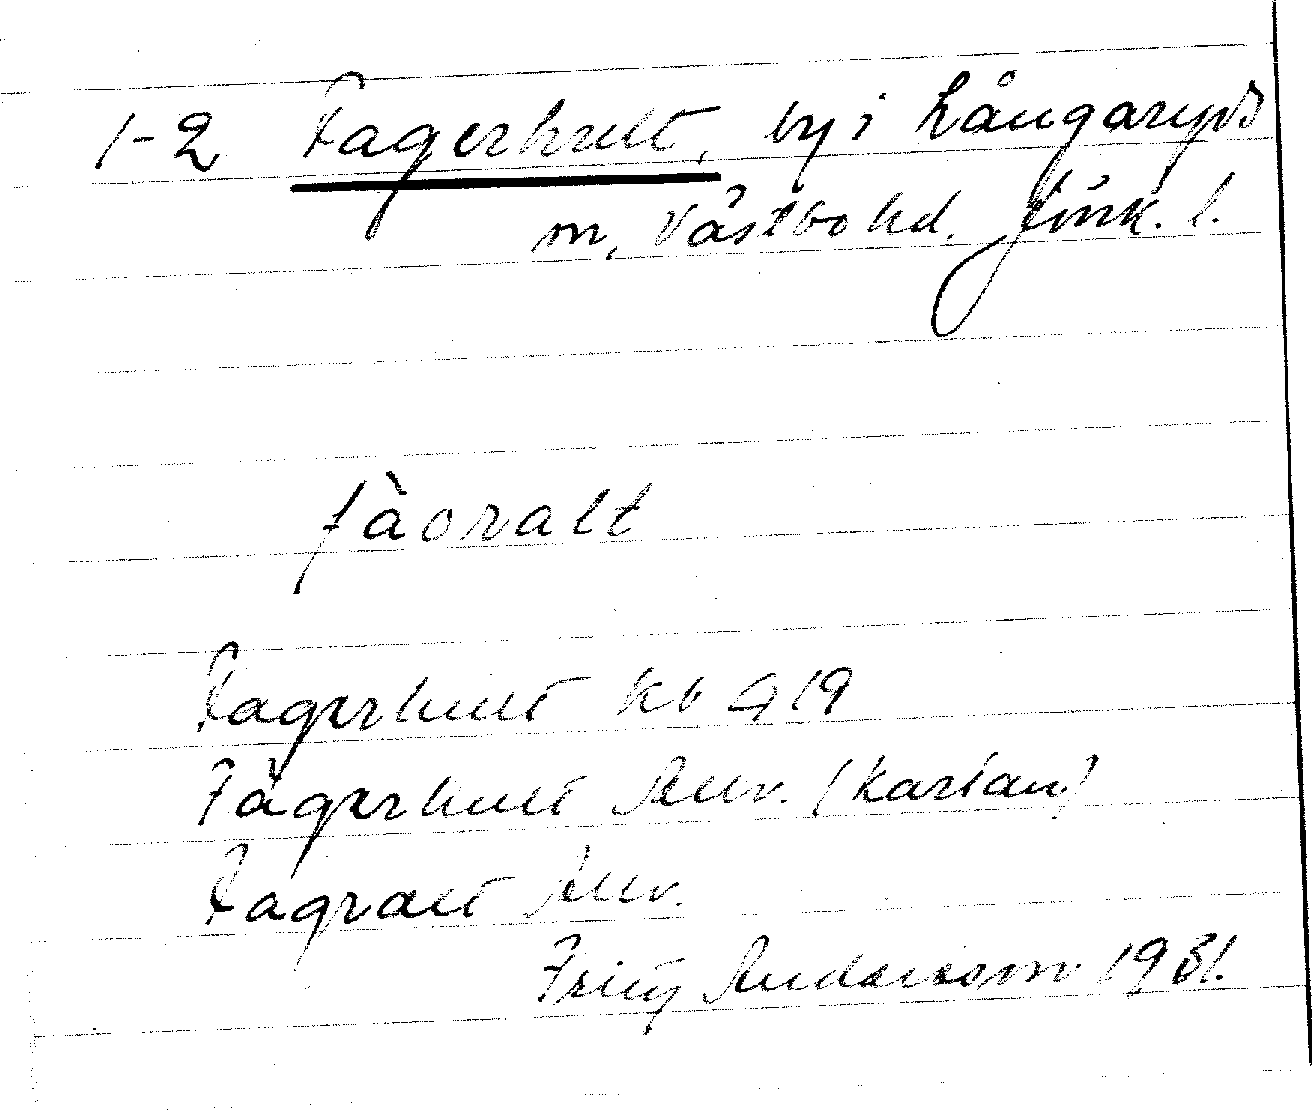 1-2 Fagerhult, by i Långaryds
sn, Västbo hd. Jönk. l.
fàoralt
Fagerhult kb G 19
Fàgerhult Allv. (kartan)
Fagralt Allv.
Fritz Andersson 1931.